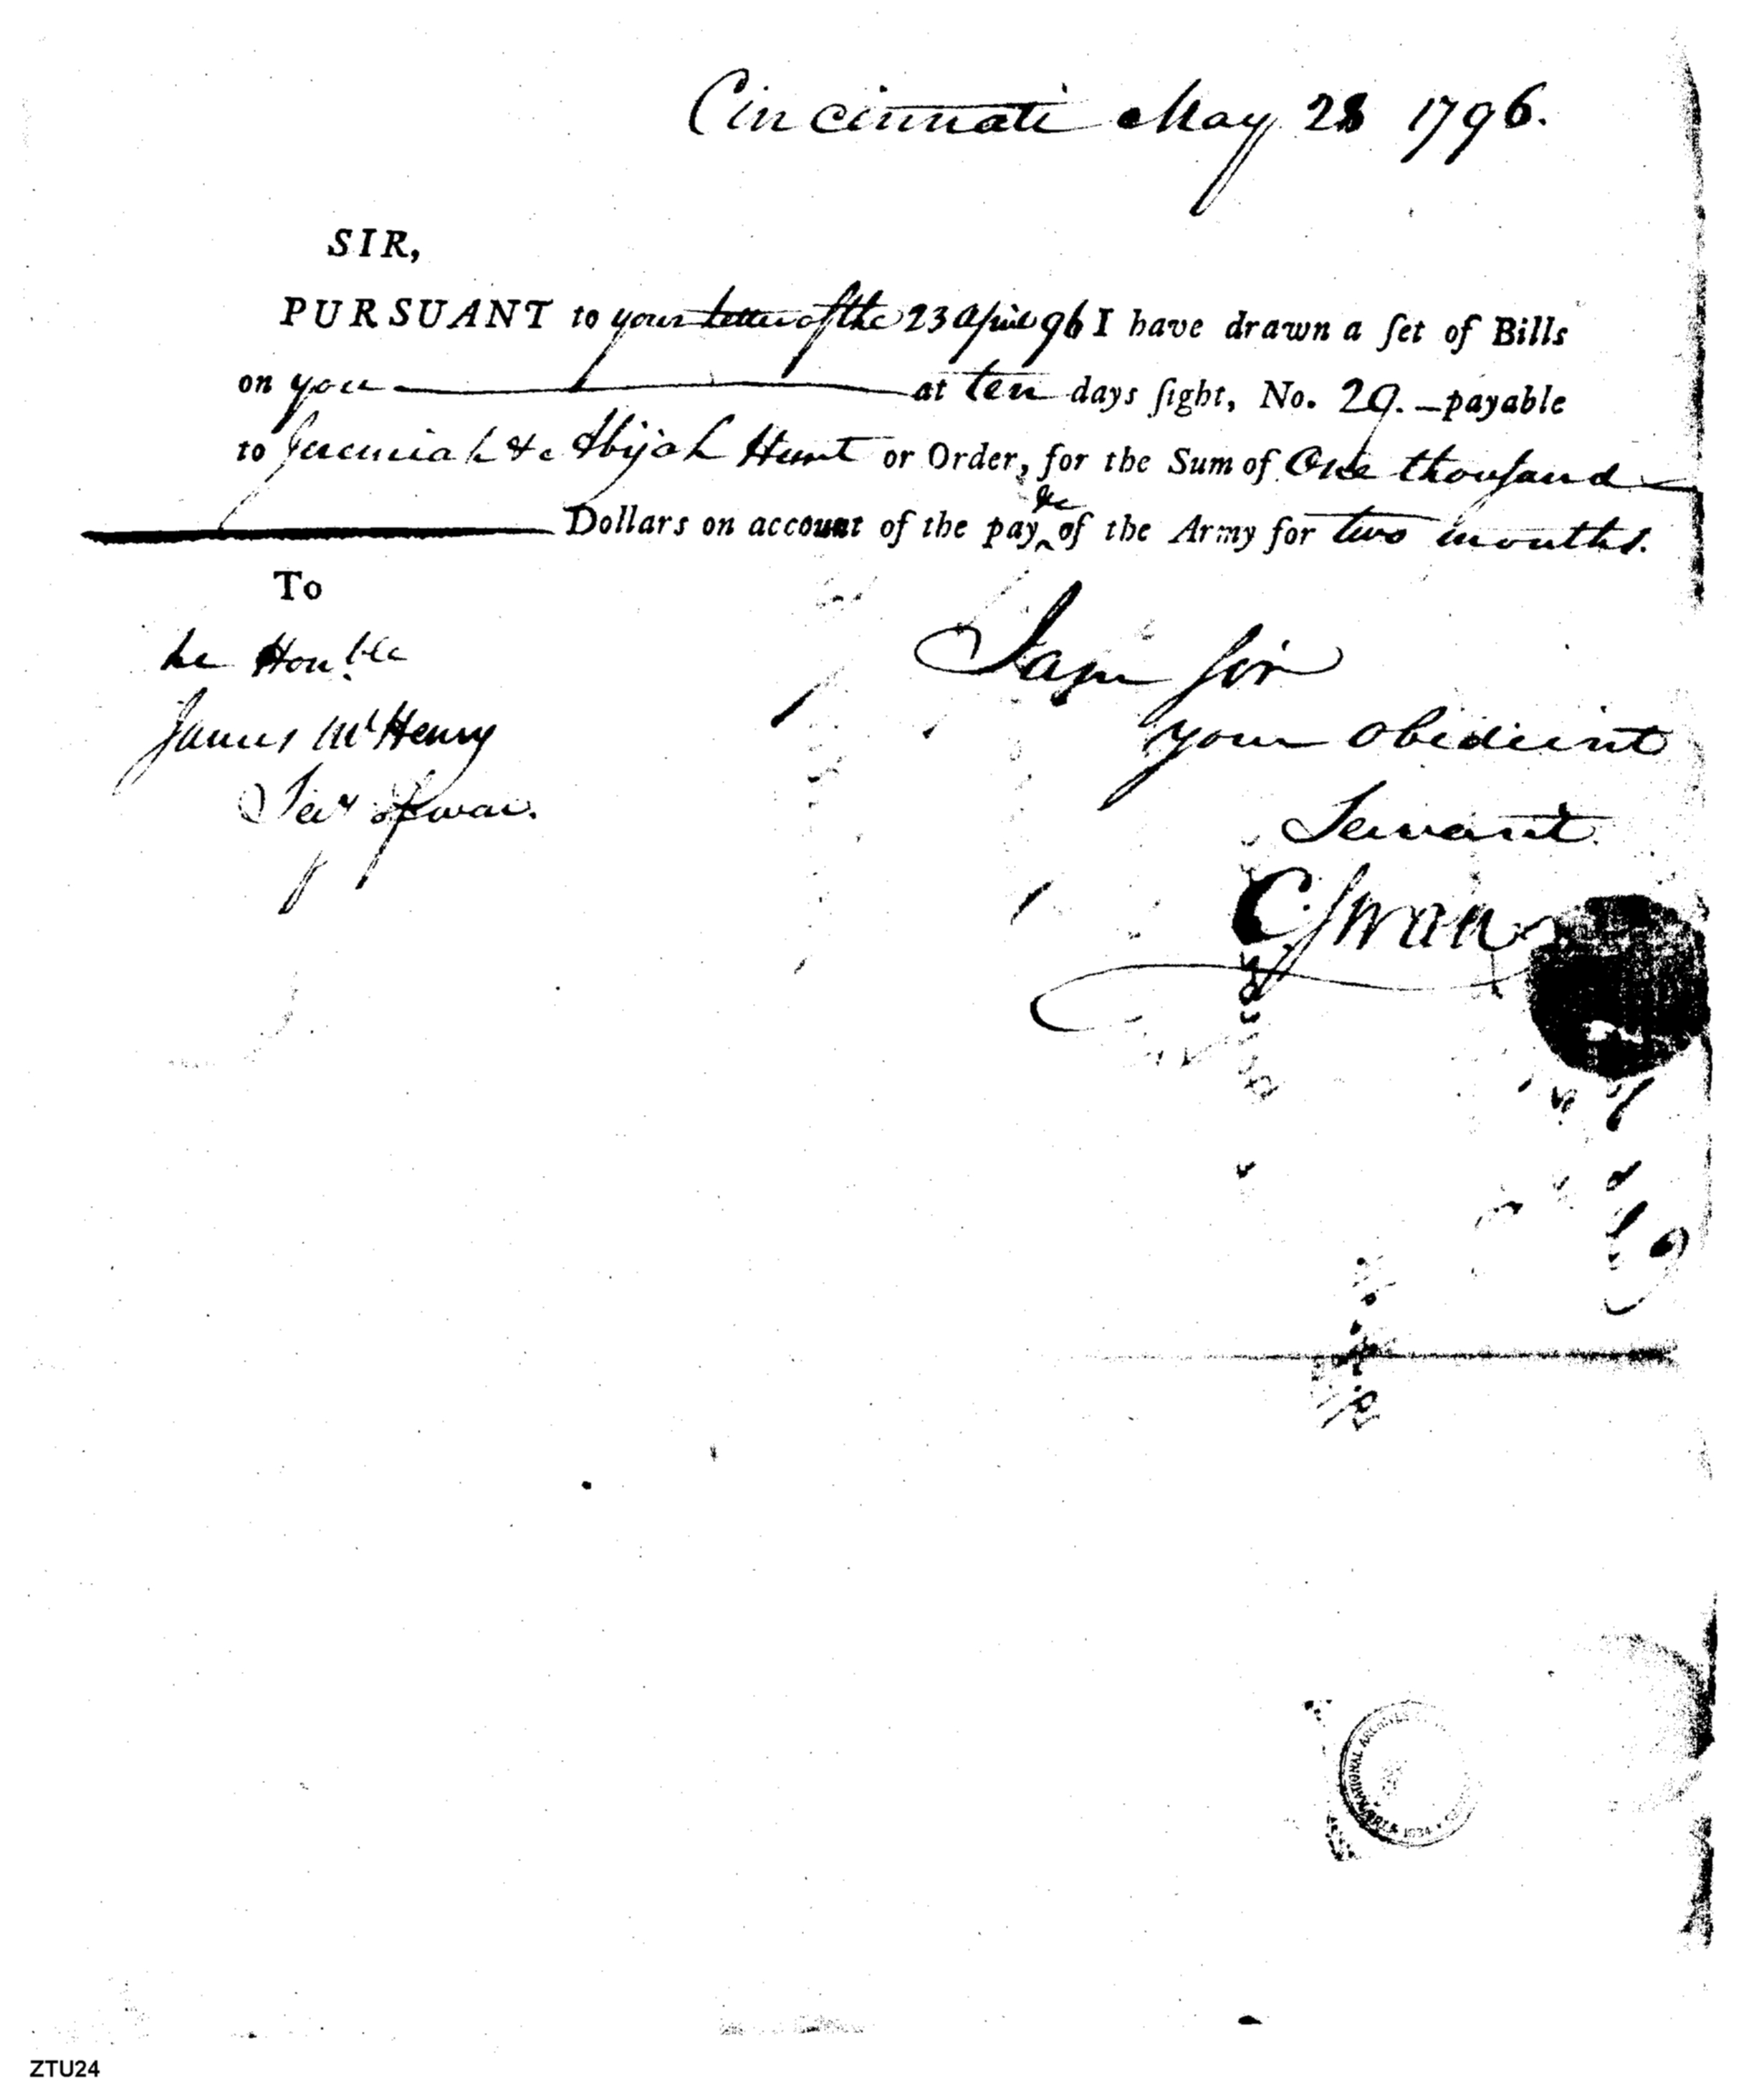 Cincinnati May 28 1796.
SIR,
PURSUANT to your letter of the 23 April 96 I have drawn a ſet of Bills
on you at ten days ſight, No. 29. payable
to Jeremiah & Abijah Hunt or Order, for the Sum of One thousand
&c
Dollars on account of the pay ‸ of the Army for two months.
To
he Honble
James McHenry
Secy of war.
I am Sir
your obedient
Servant
C Swan
NATIONAL ARCHIVES
1934
ZTU24